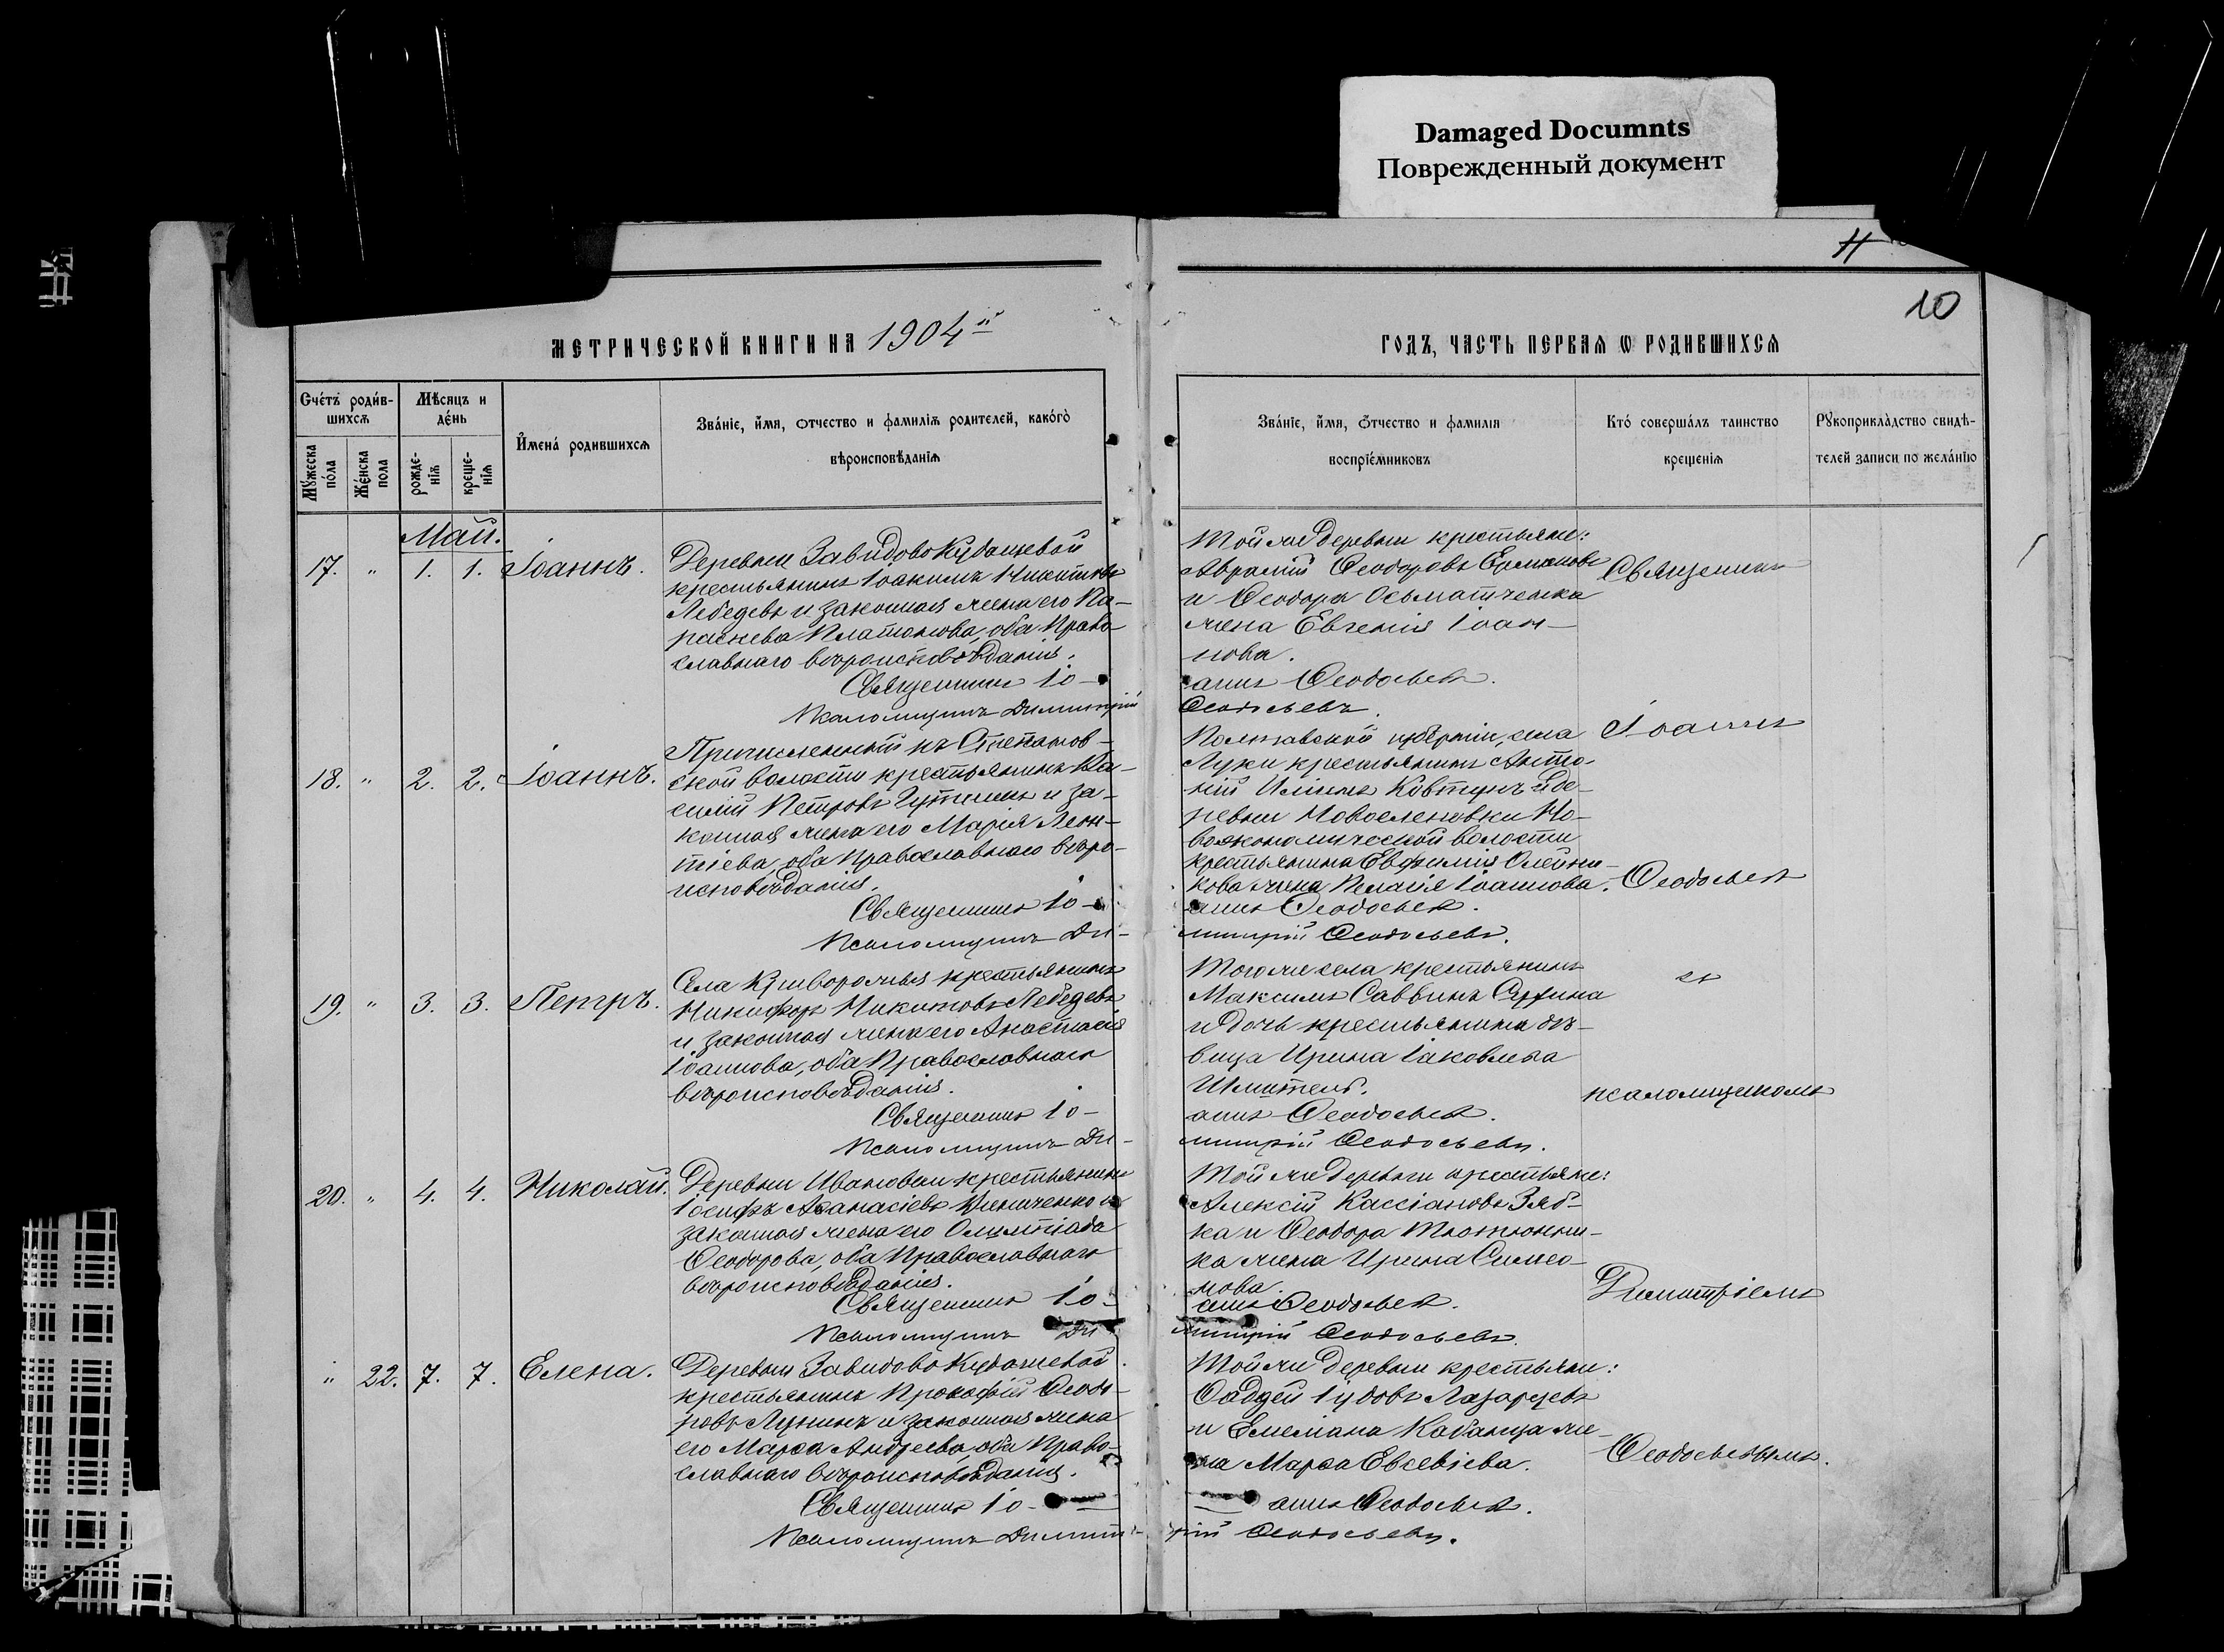 Damaged Documnts
Поврежденный документ
11
10
МЕТРИЧЕСКОЙ КНИГИ НА 1904й
ГОДЪ, ЧАСТЬ ПЕРВАЯ Ѡ РОДИВШИХСЯ
Счетъ родив-
шихся
Мѣсяцъ и
день
Имена родившихся
Званіе, имя, отчество и фамилія родителей, какого
вѣроисповѣданія
Мужеска пола
Женска пола
рожде-
нія
креще-
нія
Званіе, имя, отчество и фамилія
воспріемниковъ
Кто совершалъ таинство
крещенія
Рукоприкладство свидѣ-
телей записи по желанію
Май.
17. " 1. 1. Іоаннъ.
Деревни Завидово Кудашевой
крестьянинъ Іоакимъ Никитовъ
Лебедевъ и законная жена его Па-
раскева Платонова, оба Право-
славнаго вѣроисповѣданія.
Священникъ Іо-
Псаломщикъ Димитрій
Той же деревни крестьяне:
Аврамій Ѳеодоровъ
и Ѳеодора
жена Евгенія Іоан-
нова.
аннъ Ѳеодосьевъ.
Ѳеодосьевъ.
Священникъ
18. " 2. 2. Іоаннъ.
Причисленный къ Степанов-
ской волости крестьянинъ Ва-
силій Петровъ и за-
конная жена его Марія Леон-
тіева, оба Православнаго вѣро-
исповѣданія.
Священникъ Іо-
Псаломщикъ Ди-
Полтавской губерніи, села
Луки крестьянинъ Анто-
ній Ковтунъ и де-
ревни Новоселовки Но-
воэкономической волости
крестьянина Евфимія Олейни-
кова жена Пелагія Іоаннова.
аннъ Ѳеодосьевъ.
митрій Ѳеодосьевъ.
Іоаннъ
Ѳеодосьевъ
19. " 3. 3. Петръ.
Села Криворожья крестьянинъ
Никифоръ Никитовъ Лебедевъ
и законная жена его Анастасія
Іоаннова, оба Православнаго
вѣроисповѣданія.
Священникъ Іо-
Псаломщикъ Ди-
Того же села крестьянинъ
Максимъ Саввинъ
и дочь крестьянина дѣ-
вица Ирина Іаковлева
аннъ Ѳеодосьевъ.
митрій Ѳеодосьевъ.
съ
псаломщикомъ
20. " 4. 4. Николай.
Деревни Ивановки крестьянинъ
Іосифъ Аѳанасіевъ и
законная жена его Олимпіада
Ѳеодорова, оба Православнаго
вѣроисповѣданія.
Священникъ Іо-
Псаломщикъ Ди-
Той же деревни крестьяне:
Алексій Кассіановъ Зяб-
ка и Ѳеодора Тютюнни-
ка жена Ирина Симео-
нова.
аннъ Ѳеодосьевъ.
митрій Ѳеодосьевъ.
Димитріемъ
" 22. 7. 7. Елена.
Деревни Завидово Кудашевой
крестьянинъ Прокофій Ѳеодо-
ровъ Лунинъ и законная жена
его Марѳа Андреева, оба Право-
славнаго вѣроисповѣданія.
Священникъ Іо-
Псаломщикъ Димит-
Той же деревни крестьяне:
Ѳаддей Іудовъ Лазаревъ
и Емеліана Кабанца же-
на Марѳа Евсевіева.
аннъ Ѳеодосьевъ.
рій Ѳеодосьевъ.
Ѳеодосьевымъ.